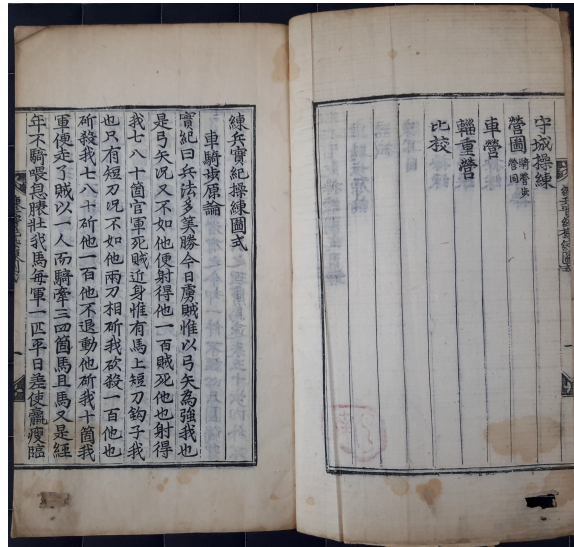 守城操練
營圖 騎營步營同
車營
輜重營
比校
練兵實紀操練圖式
車騎步原論
實紀曰兵法多筭勝今日虜賊惟以弓矢為強我也
是弓矢况又不如他便射得他一百賊死他也射得
我七八十箇官軍死賊近身惟有馬上短刀鈎子我
也只有短刀况不如他兩刀相斫我砍殺一百他也
斫殺我七八十斫他一百他不退動他斫我十箇我
軍便走了賊以一人而騎牽三四箇馬且馬又是經
年不騎喂息膘壯我馬每軍一匹平日差使羸瘦臨